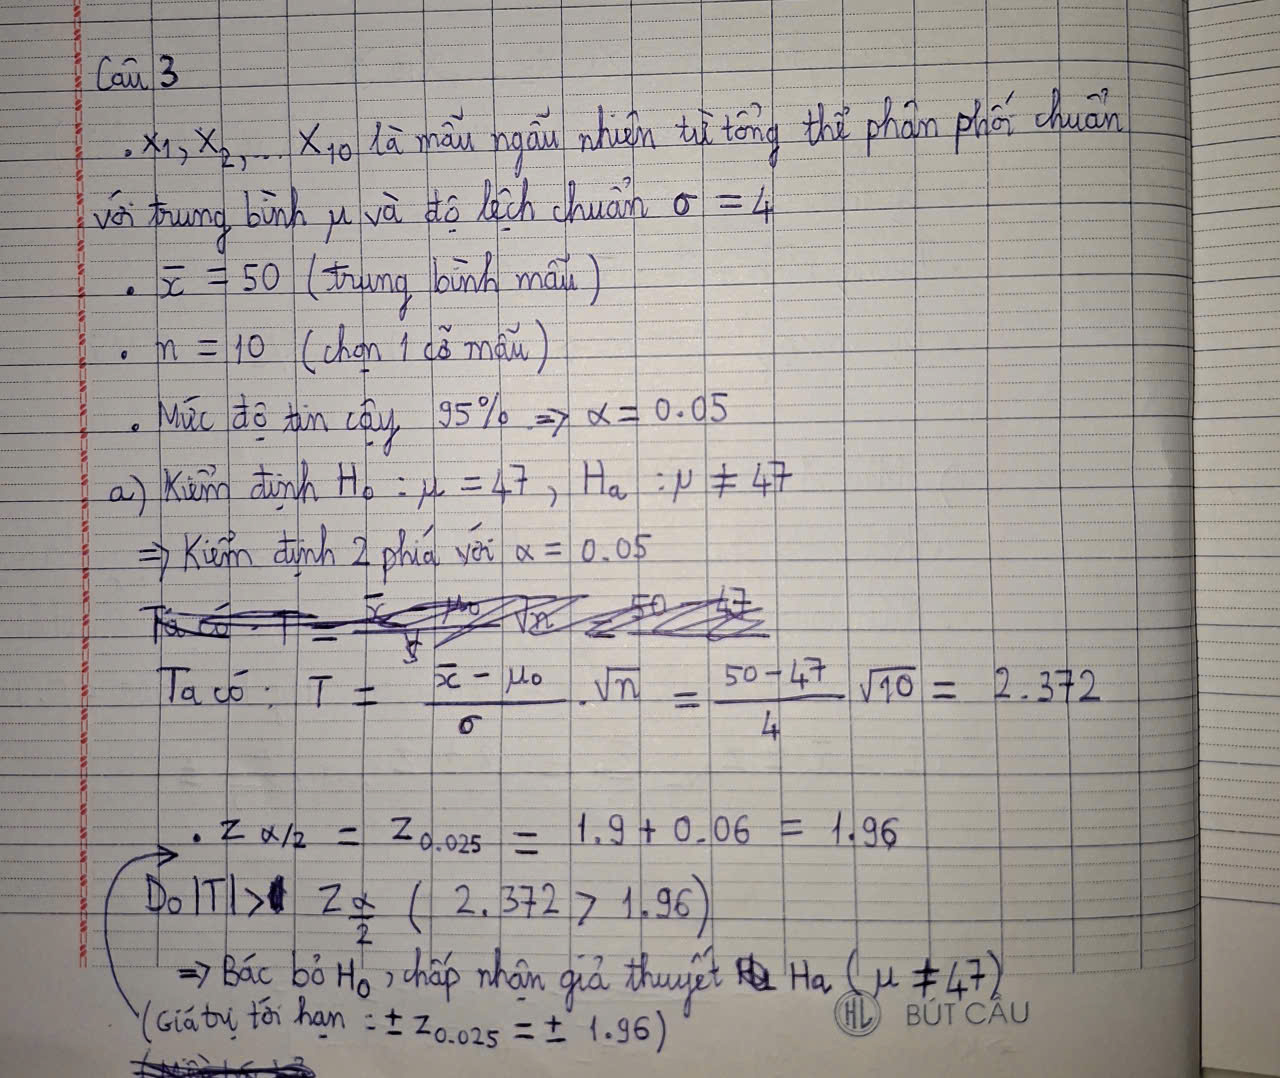 Câu 3
. X1, X2,... X10 là mẫu ngẫu nhiên từ tổng thể phân phối chuẩn
với trung bình μ và độ lệch chuẩn σ = 4
. x̄ = 50 (trung bình mẫu)
. n = 10 (chọn 1 cỡ mẫu)
. Mức độ tin cậy 95% => α = 0.05
a) Kiểm định H0 : μ = 47, Ha : μ ≠ 47
=> Kiểm định 2 phía với α = 0.05
Ta có: T = (x̄ - μ0)/σ . √n = (50 - 47)/4 √10 = 2.372
. z α/2 = z0.025 = 1.9 + 0.06 = 1.96
Do |T| > z α/2 ( 2.372 > 1.96)
=> Bác bỏ H0, chấp nhận giả thuyết Ha (μ ≠ 47)
(Giá trị tới hạn : ± z0.025 = ± 1.96)
HL BÚT CÂU